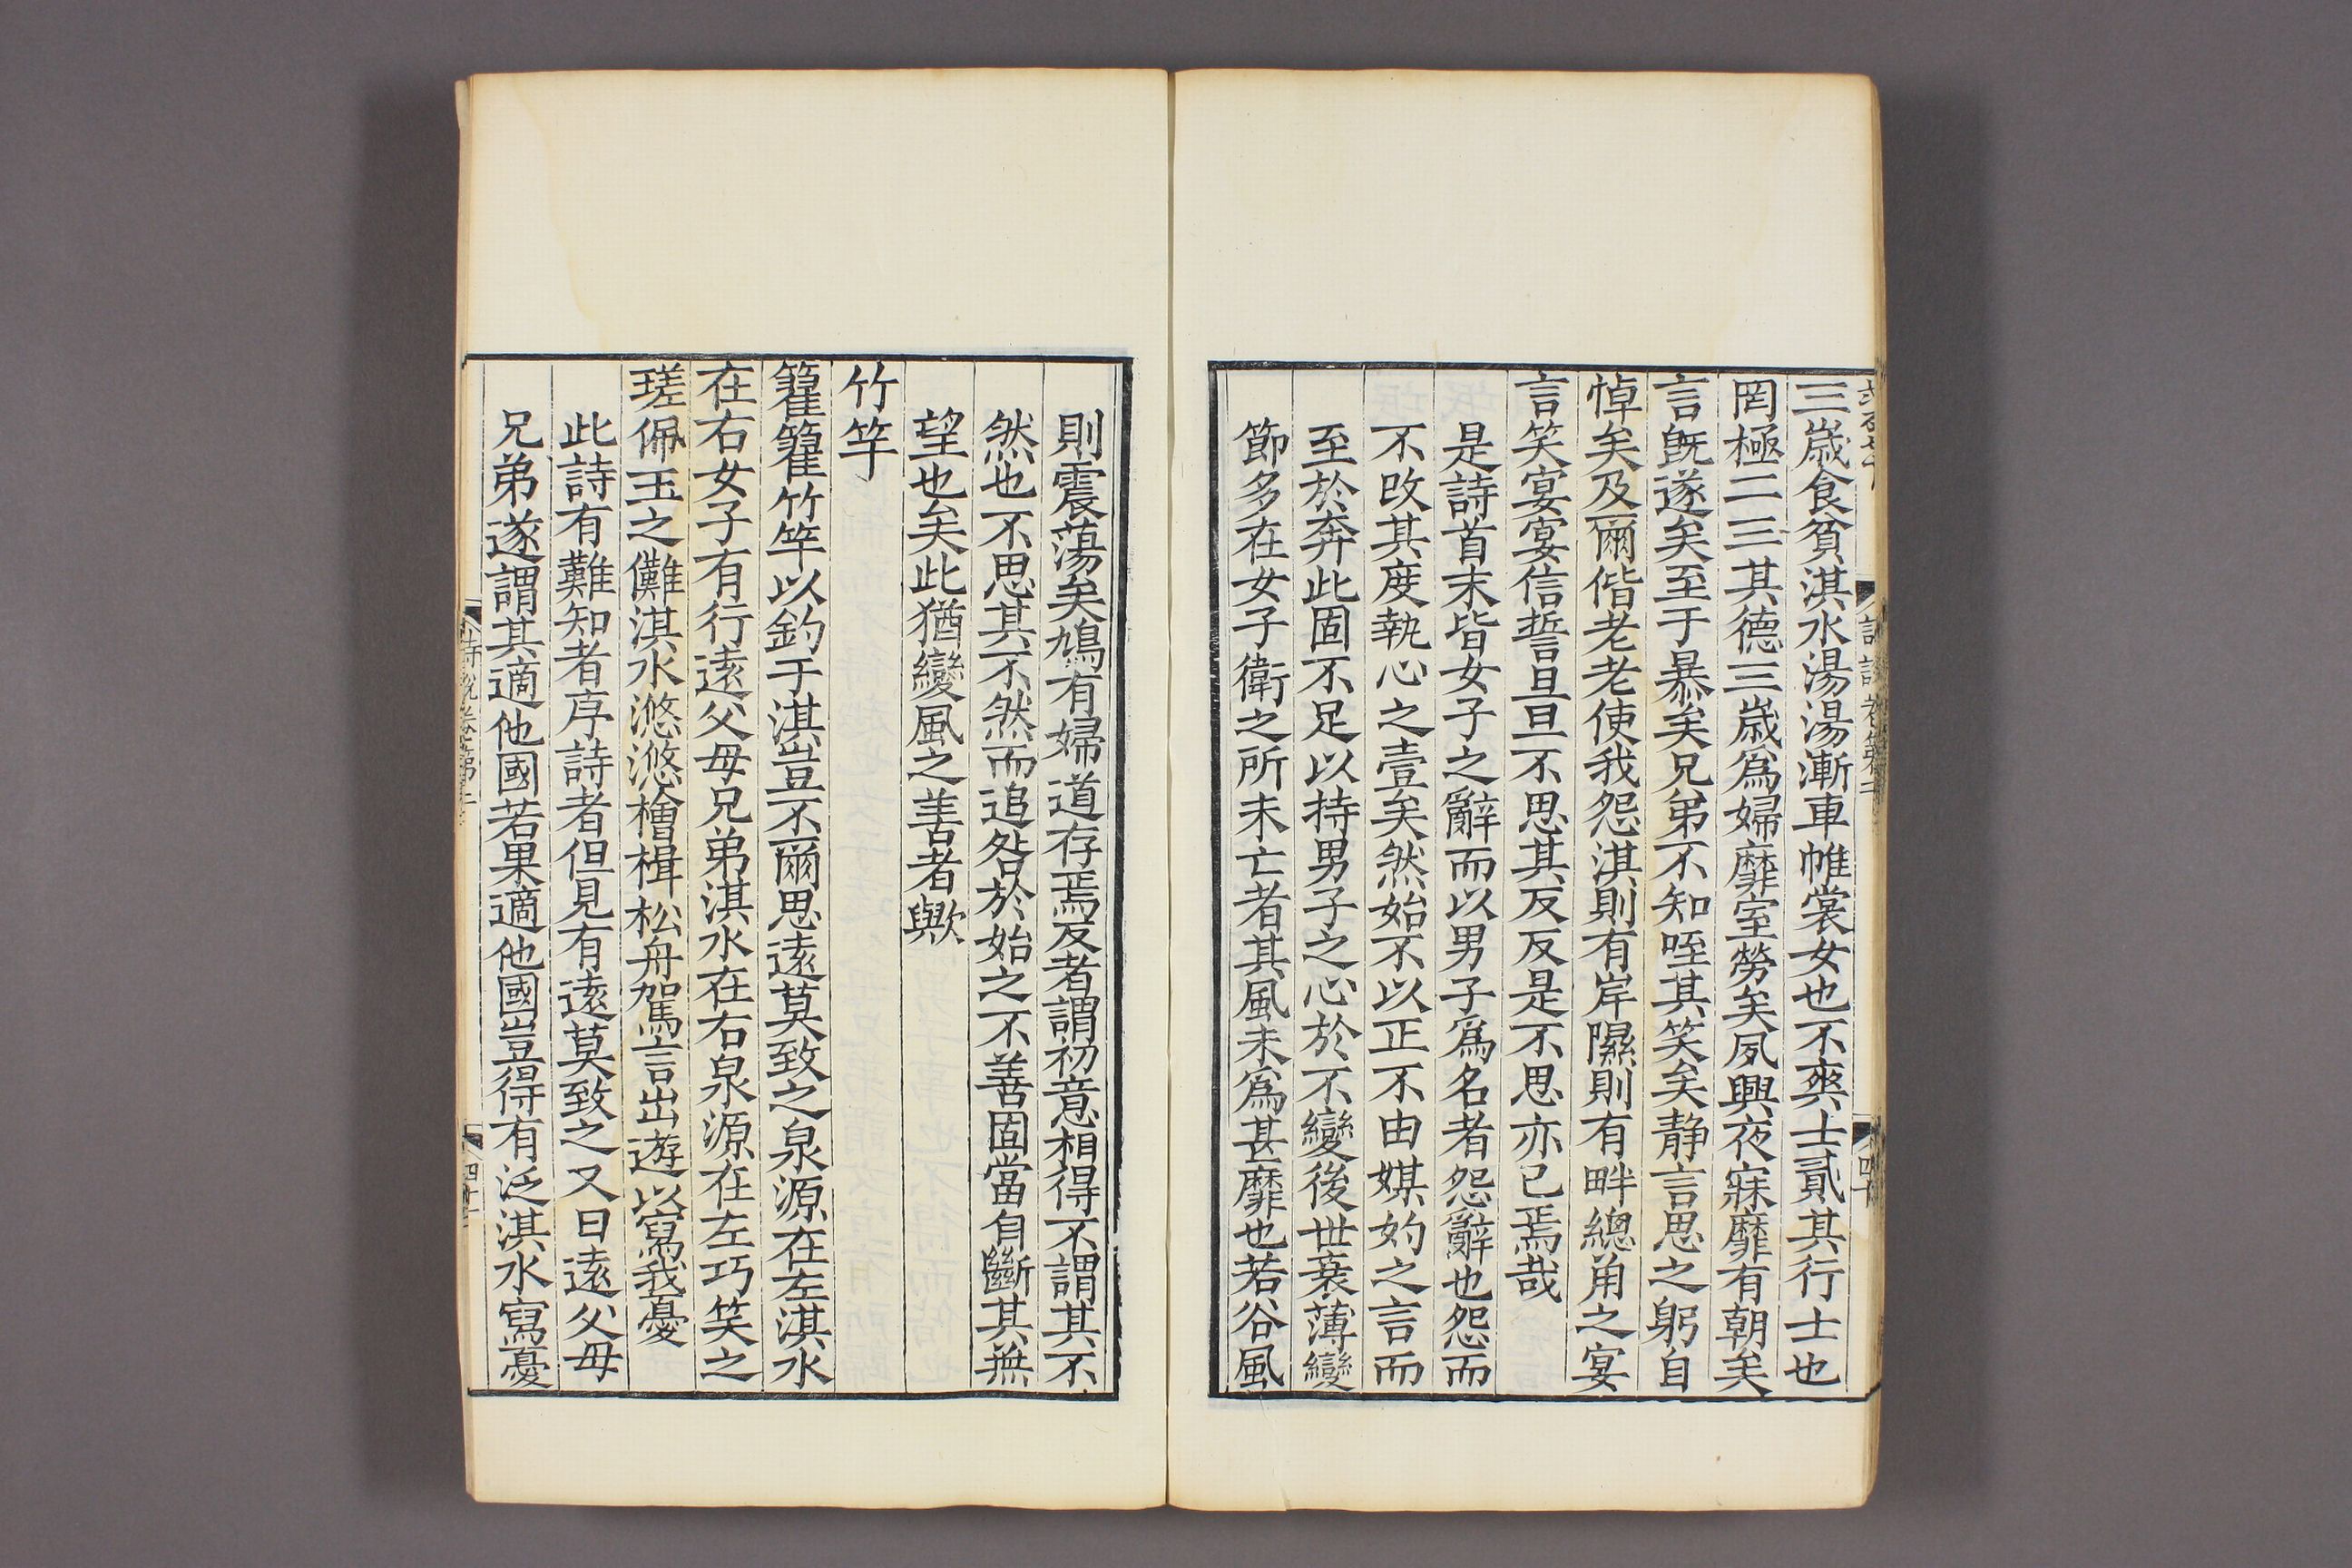 三歲食貧淇水湯湯漸車帷裳女也不爽士貳其行士也
罔極二三其德三歲爲婦靡室勞矣夙興夜寐靡有朝矣
言旣遂矣至于暴矣兄弟不知咥其笑矣静言思之躬自
悼矣及爾偕老老使我怨淇則有岸隰則有畔緫角之宴
言笑宴宴信誓旦旦不思其反反是不思亦已焉哉
是詩首末皆女子之辭而以男子爲名者怨辭也怨而
不改其度執心之壹矣然始不以正不由媒妁之言而
至於奔此固不足以持男子之心於不變後世衰薄變
節多在女子衛之所未亡者其風未爲甚靡也若谷風
則震蕩矣鳩有婦道存焉反者謂初意相得不謂其不
然也不思其不然而追咎於始之不善固當自斷其無
望也矣此猶變風之善者歟
竹竿
籊籊竹竿以釣于淇豈不爾思遠莫致之泉源在左淇水
在右女子有行遠父母兄弟淇水在右泉源在左巧笑之
瑳佩玉之儺淇水滺滺檜楫松舟駕言出遊以寫我憂
此詩有難知者序詩者但見有遠莫致之又曰遠父母
兄弟遂謂其適他國若果適他國豈得有泛淇水寫憂
詩說卷第二